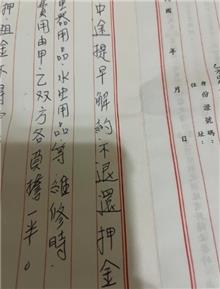 身份證號碼：
住址：
國 年 月 日
中途提早解約不退還押金
器用品、水电用品等維修時
費用由甲、乙双方各負擔一半。
押.租金不得